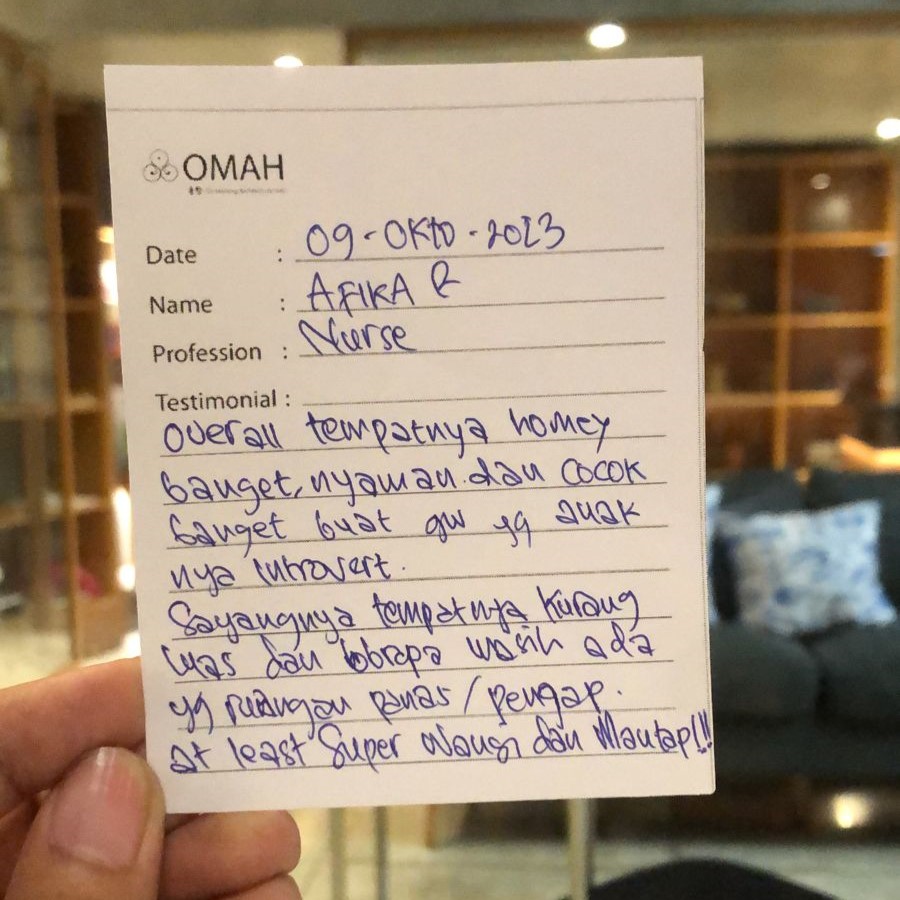 OMAH
Date : 09-OKTO-2023
Name : AFIKA R
Profession : Nurse
Testimonial :
Overall tempatnya homey
banget, nyaman dan cocok
banget buat gw yg anak
nya introvert.
Sayangnya tempatnya kurang
luas dan bbrapa masih ada
yg ruangan panas/pengap.
at least Super Wangi dan Mantap!!